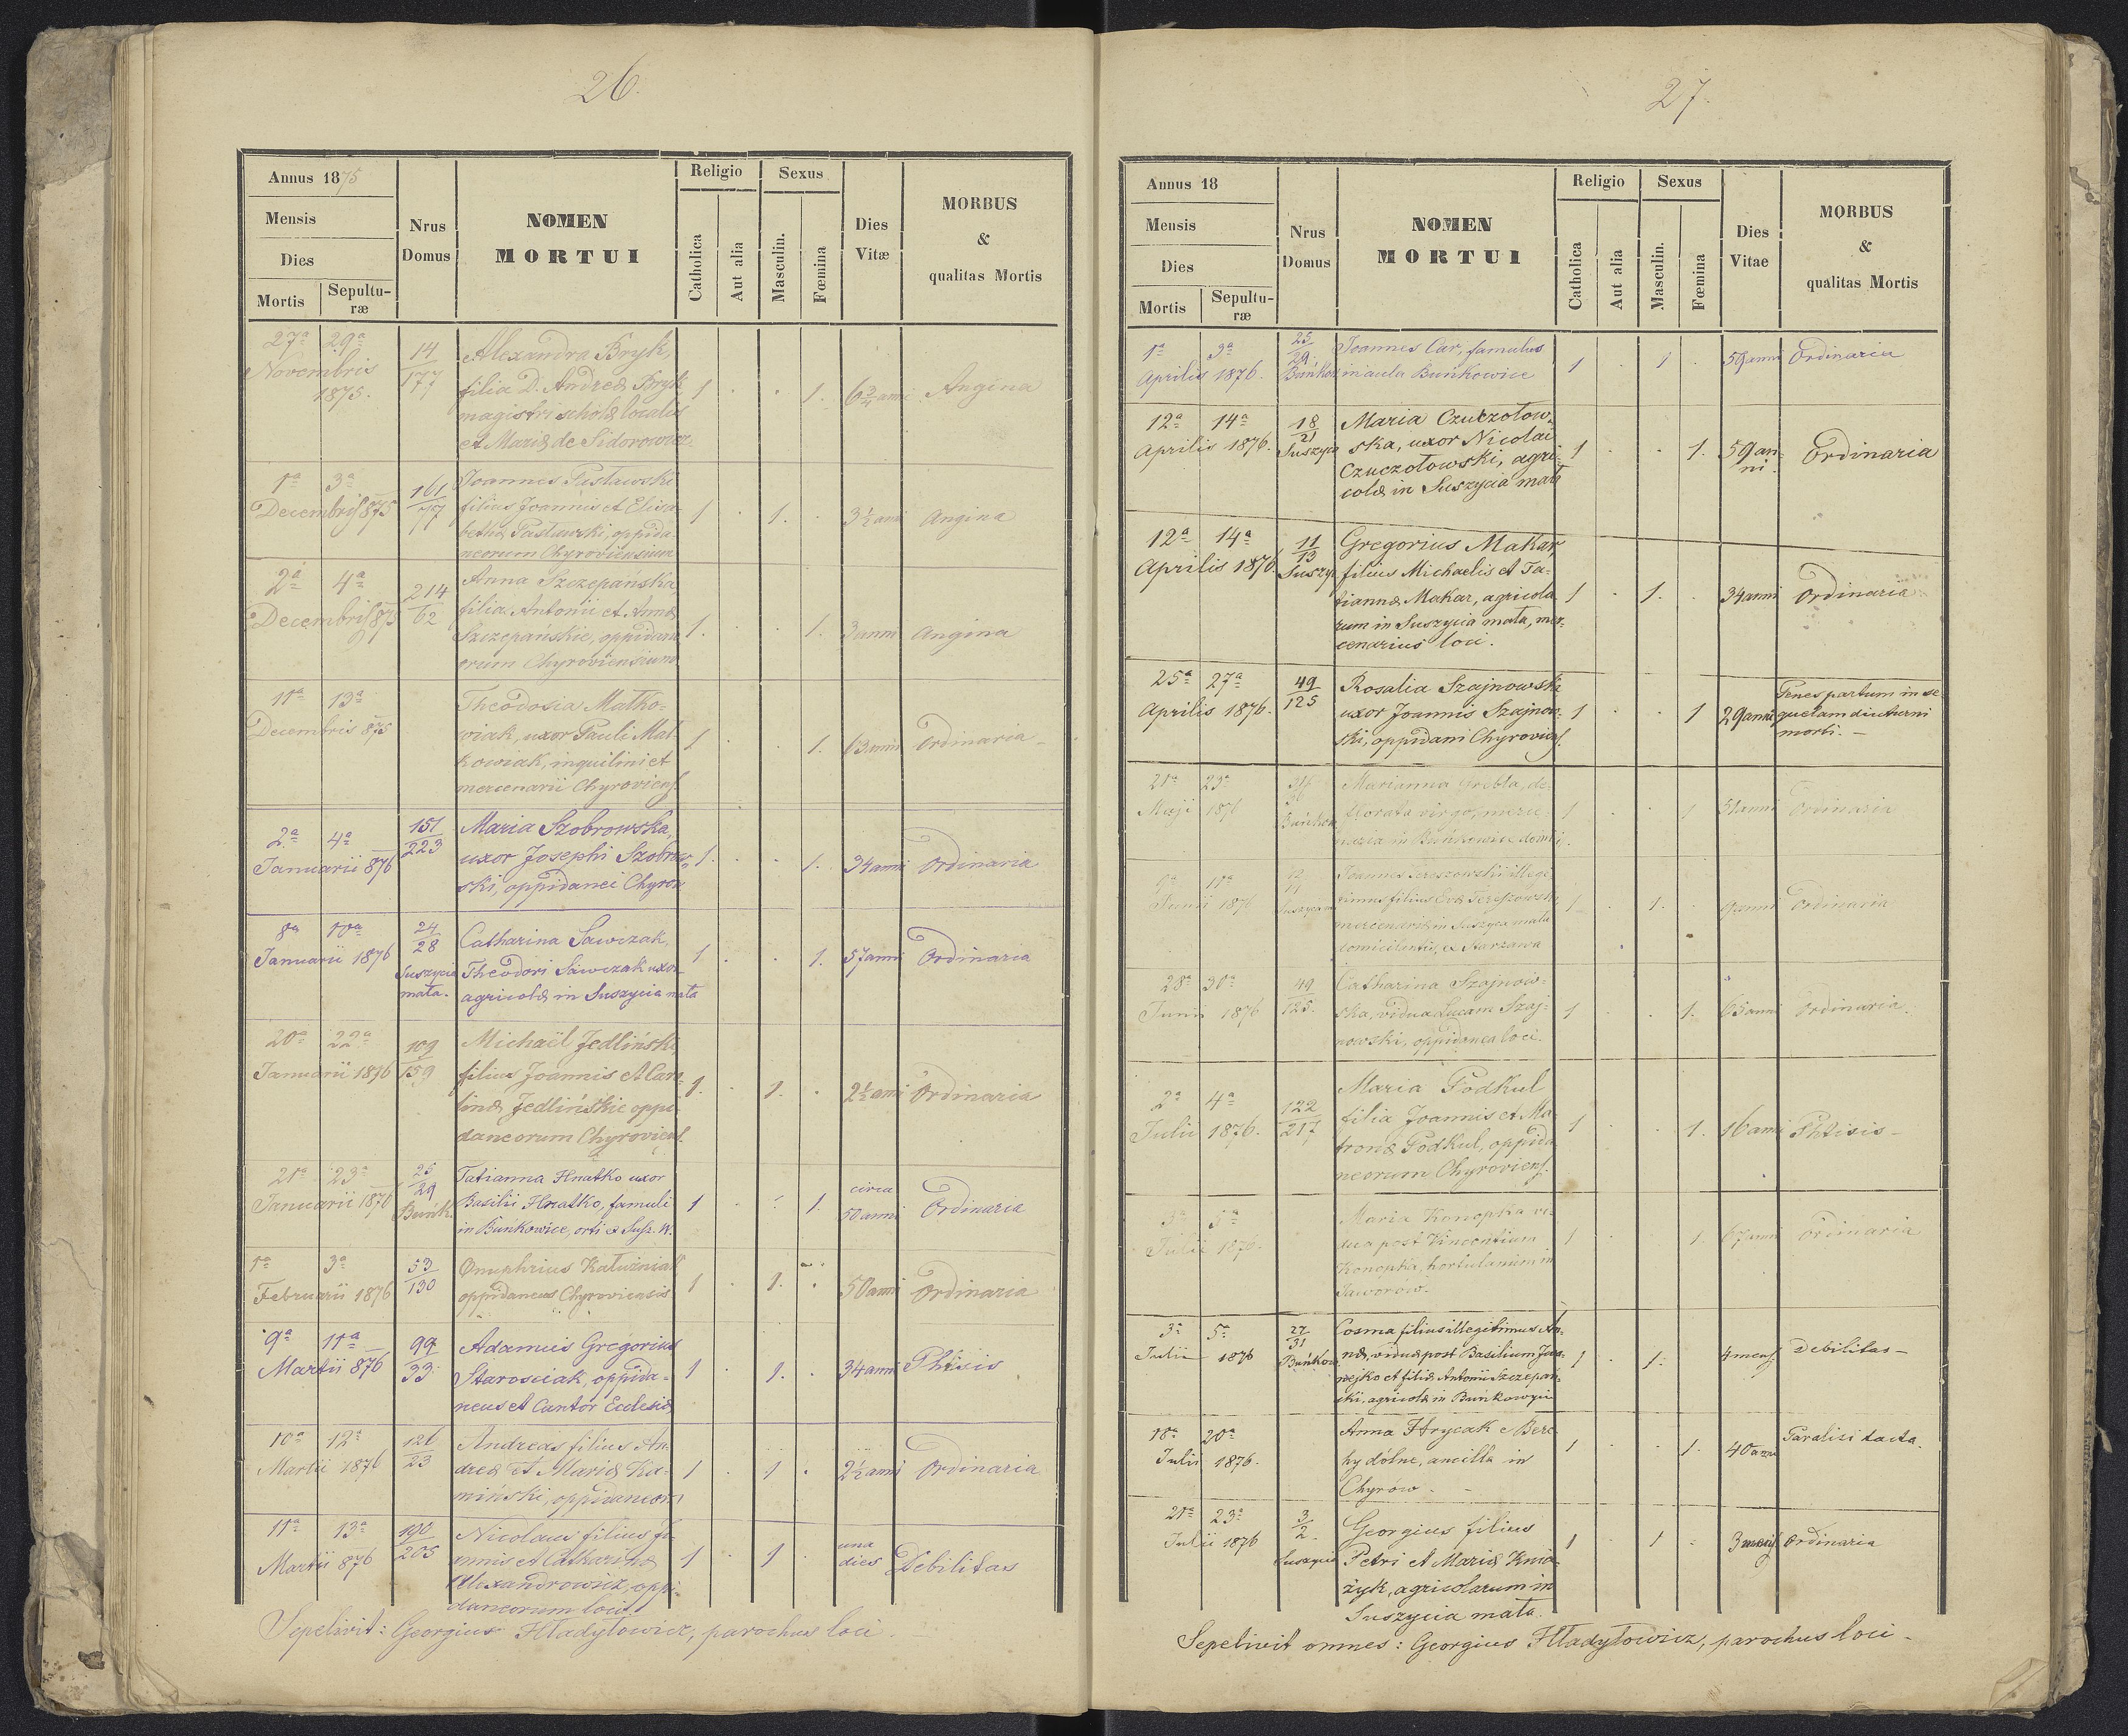 26.
Annus 1875
Mensis
Dies
Mortis
Sepultu-
ræ
Nrus
Domus
NOMEN
MORTUI
Religio
Catholica
Aut alia
Sexus
Masculin.
Fœmina
Dies
Vitæ
MORBUS
&
qualitas Mortis
27ª 29ª
Novembris
1875.
14
177
Alexandra Bryk,
filia D. Andreæ Bryk
magistri scholæ localis
et Mariæ de Sidorowicz
1 . . 1. 6¾ anni Angina
1ª 3ª
Decembris 875
161
77
Joannes Pasławski
filius Joannis et Elisa-
bethæ Pasławski, oppida-
neorum Chyroviensium
1 . 1. . 3½ anni Angina
2ª 4ª
Decembris 875
214
62
Anna Szczepańska,
filia Antonii et Annæ
Szczepańskie, oppidane-
orum Chyroviensium
1. . . 1. 3 anni Angina
11ª 13ª
Decembris 875
Theodosia Matko-
wiak, uxor Pauli Mat-
kowiak, inquilini et
mercenarii Chyroviens.
1 . . 1. 63 anni Ordinaria
2ª 4ª
Januarii 876
151
223
Maria Szobrowska,
uxor Josephi Szobrow-
ski, oppidanei Chyrov
1. . . 1. 34 anni Ordinaria
8ª 10ª
Januarii 1876
24
28
Suszycia
mała.
Catharina Sawczak,
Theodori Sawczak uxor
agricolæ in Suszycia mała
1 . . 1. 57 anni Ordinaria
20ª 22ª
Januarii 1876
109
159
Michaël Jedliński,
filius Joannis et Caro-
linæ Jedlińskie oppi-
daneorum Chyroviens.
1. . 1. . 2½ anni Ordinaria
21ª 23ª
Januarii 1876
25
29
Buńk.
Tatianna Hnatko uxor
Basilii Hnatko, famuli
in Buńkowice, orti e Susz. W.
1 . . 1. circa
50 anni Ordinaria
1ª 3ª
Februarii 1876
53
130
Onuphrius Kałużniak
oppidaneus Chyroviensis
1 . 1. . 50 anni Ordinaria
9ª 11ª
Martii 876
99
33
Adamus Gregorius
Starosciak, oppida-
neus et Cantor Ecclesiæ
1 . 1. . 34 anni Phtisis
10ª 12ª
Martii 1876
126
23
Andreas filius An-
dreæ et Mariæ Ka-
miński, oppidaneor.
1 . 1 . 2½ anni Ordinaria
11ª 13ª
Martii 876
190
205
Nicolaus filius Jo-
annis et Catharinæ
Alexandrowicz, oppi-
daneorum loci
1 . 1 una
dies Debilitas
Sepelivit: Georgius Hładyłowicz, parochus loci.
27.
Annus 18
Mensis
Dies
Mortis
Sepultu-
ræ
Nrus
Domus
NOMEN
MORTUI
Religio
Catholica
Aut alia
Sexus
Masculin.
Fœmina
Dies
Vitae
MORBUS
&
qualitas Mortis
1ª 3ª
Aprilis 1876.
25
29.
Buńkow
Joannes Car, famulus
in aula Buńkowice
1 . 1 . 59 anni Ordinaria
12ª 14ª
Aprilis 1876.
18
21
Suszyca
Maria Czuczotow-
ska, uxor Nicolai
Czuczotowski, agri-
colæ in Suszycia mała
1 . . 1. 59 an-
ni. Ordinaria
12ª 14ª
Aprilis 1876
11
13
Suszyc
Gregorius Makar,
filius Michaelis et Ta-
tiannæ Makar, agricola-
rum in Suszycia mała, mer-
cenarius loci.
1 . 1. . 34 anni Ordinaria
25ª 27ª
Aprilis 1876.
49
125
Rosalia Szajnowska
uxor Joannis Szajnow-
ski, oppidani Chyroviens.
1 . . 1 29 anni Penes partum in se-
quelam diuturni
morbi.
21ª 23ª
Maji 1876
Marianna Grebla, de-
florata virgo, merce-
naria in Buńkowice
1 . . 1 51 anni Ordinaria
11ª
Junii 1876
Joannes Tereszowski illegi-
timus filius Evæ Tereszowska
mercenariæ in Suszyca mała
domicilantis, ex Starzawa
1 . 1. . anni Ordinaria
28ª 30ª
Junii 1876
49
125.
Catharina Szajnow-
ska, vidua Lucam Szaj-
nowski, oppidanea loci.
1 . . 1. 65 anni Ordinaria.
2ª 4ª
Julii 1876.
122
217
Maria Podkul
filia Joannis et Ma-
tronæ Podkul, oppida-
neorum Chyroviens.
1 . . 1. 16 anni Phtisis
3ª 5ª
Julii 1876.
Maria Konopka vi-
dua post Vincentium
Konopka, hortulanum in
Jaworów.
1 . . 1. 67 anni Ordinaria
3ª 5ª
Julii 1876
27
31
Buńkow.
Cosma filius illegitimus An-
næ, viduæ post Basilium
et filiæ Antonii Szczepań-
ski, agricolæ in Buńkowyci
1 . 1. 4 mens. Debilitas
18ª 20ª
Julii 1876.
Anna Hrycak e Bere-
hy dólne, ancilla in
Chyrów.
1 . . 1. 40 anni Paralisi tacta.
21ª 23ª
Julii 1876
3
2.
Suszycia
Georgius filius
Petri et Mariæ Knia-
żyk, agricolarum in
Suszycia mała.
1 . 1 . 3 mens. Ordinaria
Sepelivit omnes: Georgius Hładyłowicz, parochus loci